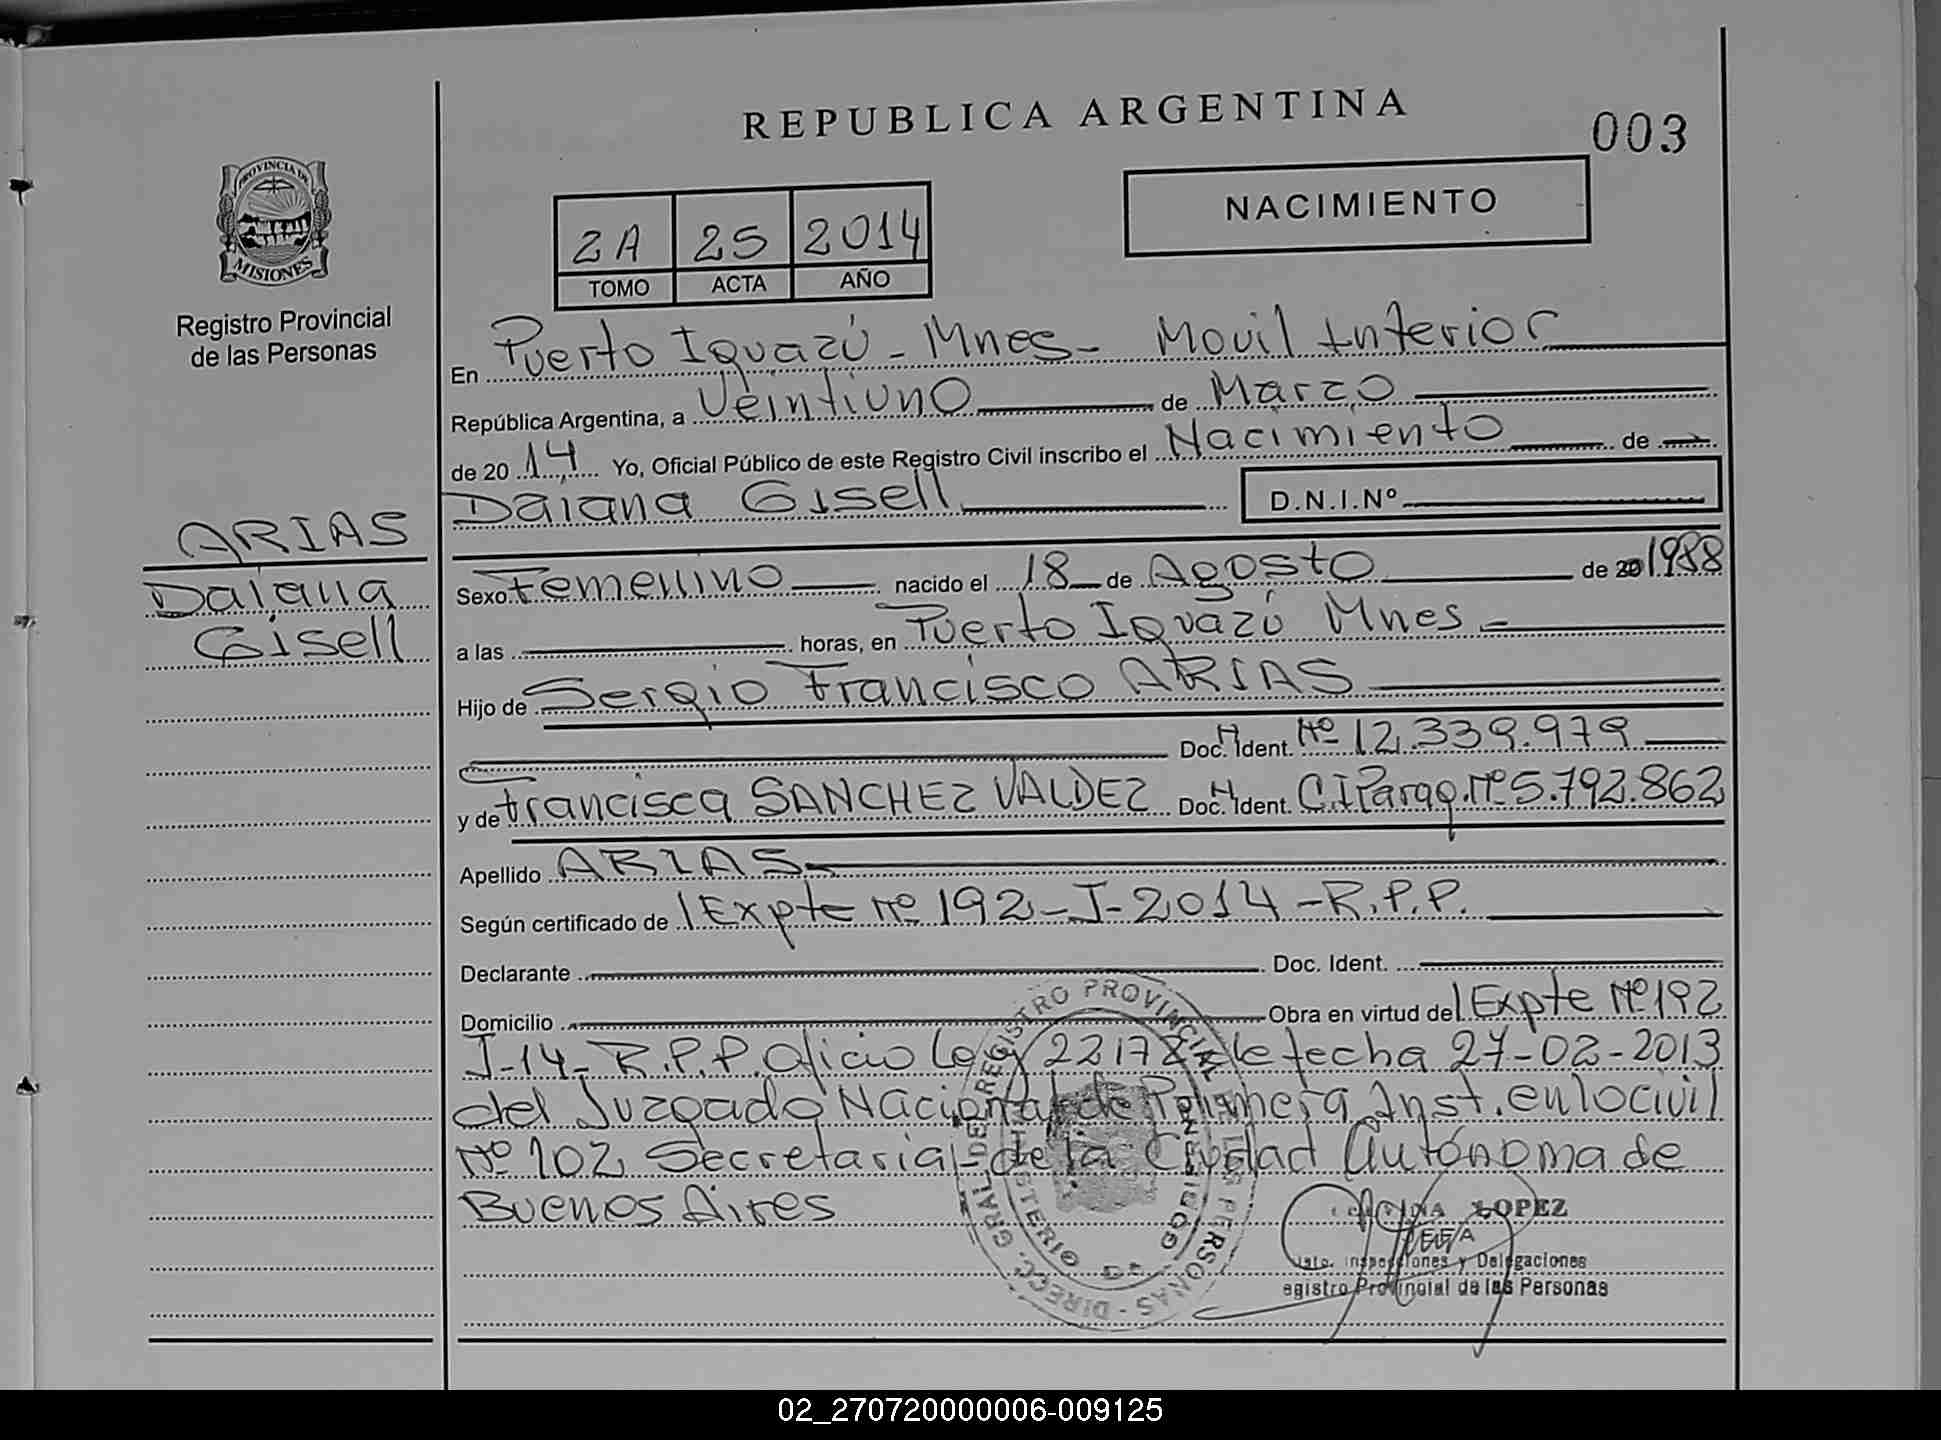 REPUBLICA ARGENTINA
003
PROVINCIA DE
MISIONES
Registro Provincial
de las Personas
NACIMIENTO
2A 25 2014
TOMO ACTA AÑO
En Puerto Iguazú - Mnes - Movil Interior
República Argentina, a Veintiuno de Marzo
de 2014 Yo, Oficial Público de este Registro Civil inscribo el Nacimiento de
Daiana Gisell D.N.I.Nº
ARIAS
Daiana
Gisell
Sexo Femenino nacido el 18 de Agosto de 20 1988
a las horas, en Puerto Iguazú Mnes -
Hijo de Sergio Francisco ARIAS
Doc. Ident. Nº 12.339.979
y de Francisca SANCHEZ VALDEZ Doc. Ident. C.I Parag. Nº 5.792.862
Apellido ARIAS
Según certificado de Expte Nº 192-I-2014-R.P.P.
Declarante Doc. Ident.
Domicilio Obra en virtud del Expte Nº 192
I-14-R.P.P. Oficio Ley 22172 de fecha 27-02-2013
del Juzgado Nacional de Primera Inst. en lo Civil
Nº 102 Secretaria de la Ciudad Autónoma de
Buenos Aires
DIRECC. GRAL. DE REGISTRO PROVINCIAL DE LAS PERSONAS
MINISTERIO DE GOBIERNO
LOPEZ
JEFA
Inspecciones y Delegaciones
Registro Provincial de las Personas
02_270720000006-009125